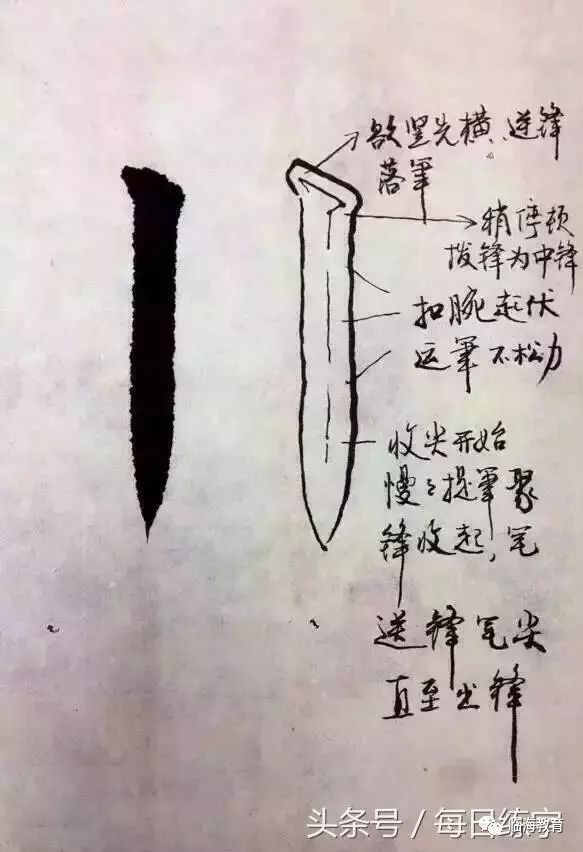 欲竖先横、逆锋
落笔
稍停顿
拨锋为中锋
扣腕起伏
运笔不松力
收尖开始
慢々提笔聚
锋收起,笔
送锋笔尖
直至出锋
头条号／每日练字
临海教育